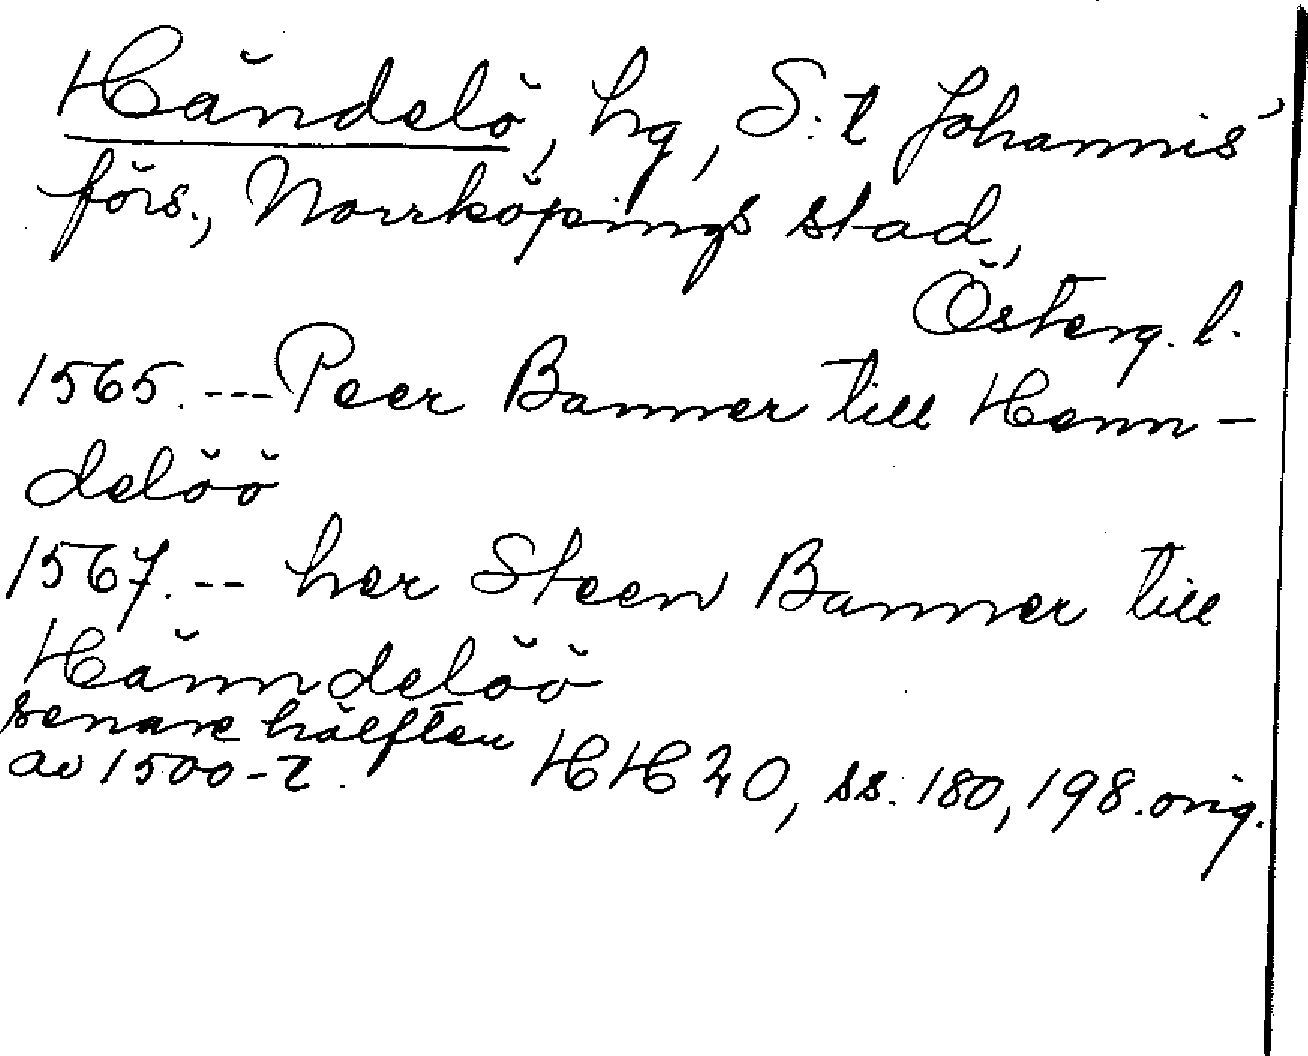 Händelö, hg, S:t Johannis'
förs., Norrköpings stad,
Österg. l.
1565. --- Peer Banner till Henn-
delöö
1567. -- her Steen Banner till
Hänndelöö
senare hälften
av 1500-t.
HH 20, ss. 180, 198. orig.